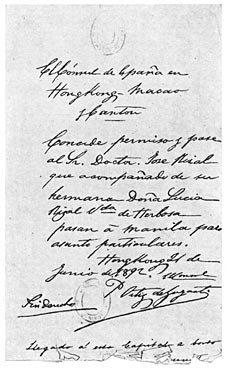 El Cónsul de España en
Hong Kong - Macao
y Canton
Concede permiso y pase
al Sr. Doctor. Jose Rizal
que acompañado de su
hermana Doña Lucia
Rizal Vda de Herbosa
pasan á Manila para
asunto particulares.
Hong Kong 21 de
Junio de 1892.
P. Ortiz
Sin derecho
Llegado al esta Capital á bordo